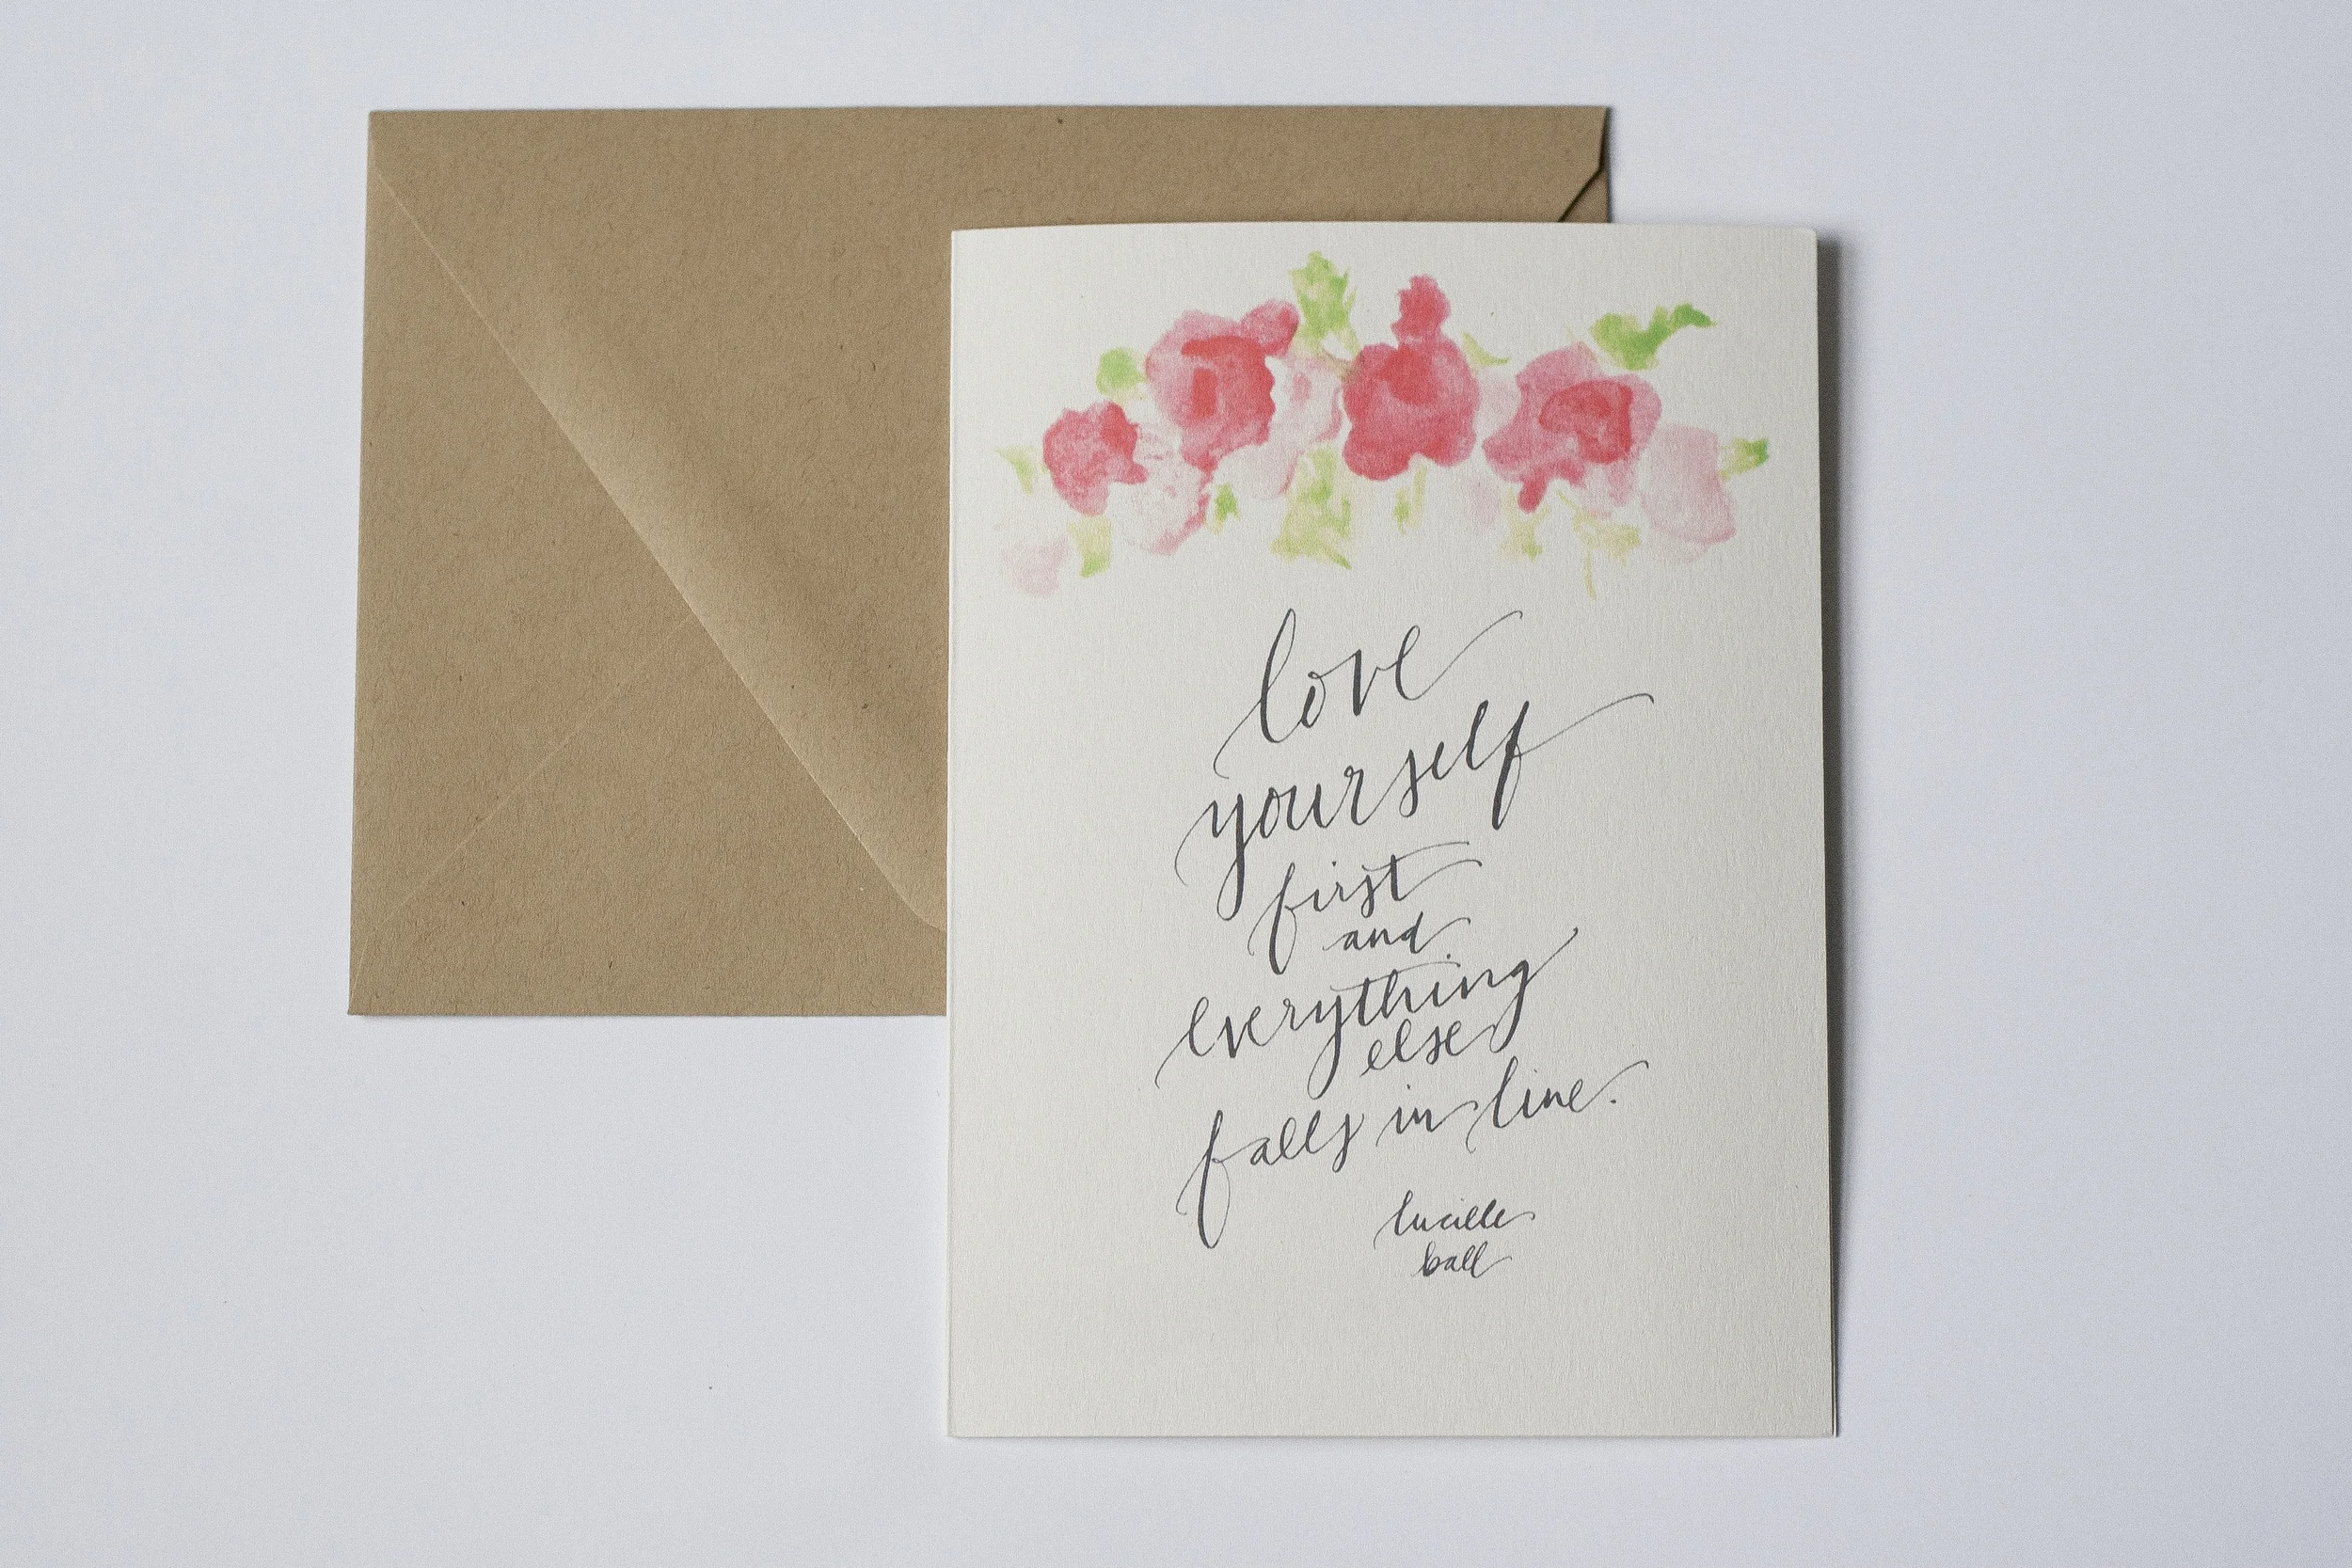 love
yourself
first
and
everything
else
falls in line.
lucille
ball